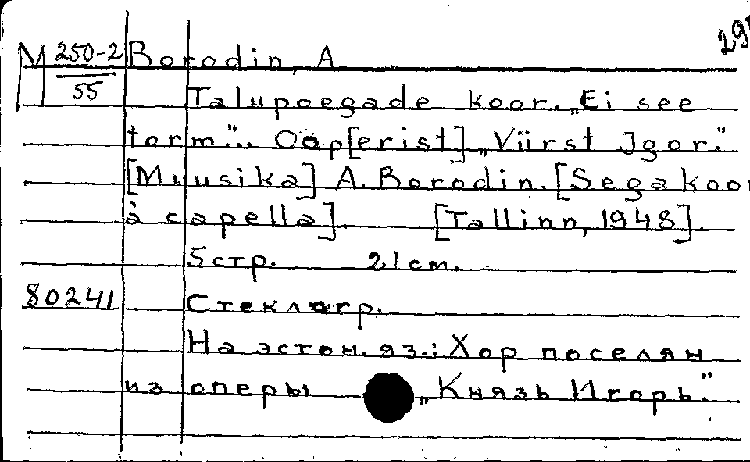 M 250-2 Borodin, A 29
55 Talupoegade koor. „Ei see
torm"... Oop[erist] „Vürst Igor."
[Muusika] A. Borodin. [Segakoor
à capella]. [Tallinn, 1948].
5 стр. 21 cm.
80241 Стеклогр.
На эстон. яз.: Хор поселян
из оперы „Князь Игорь."